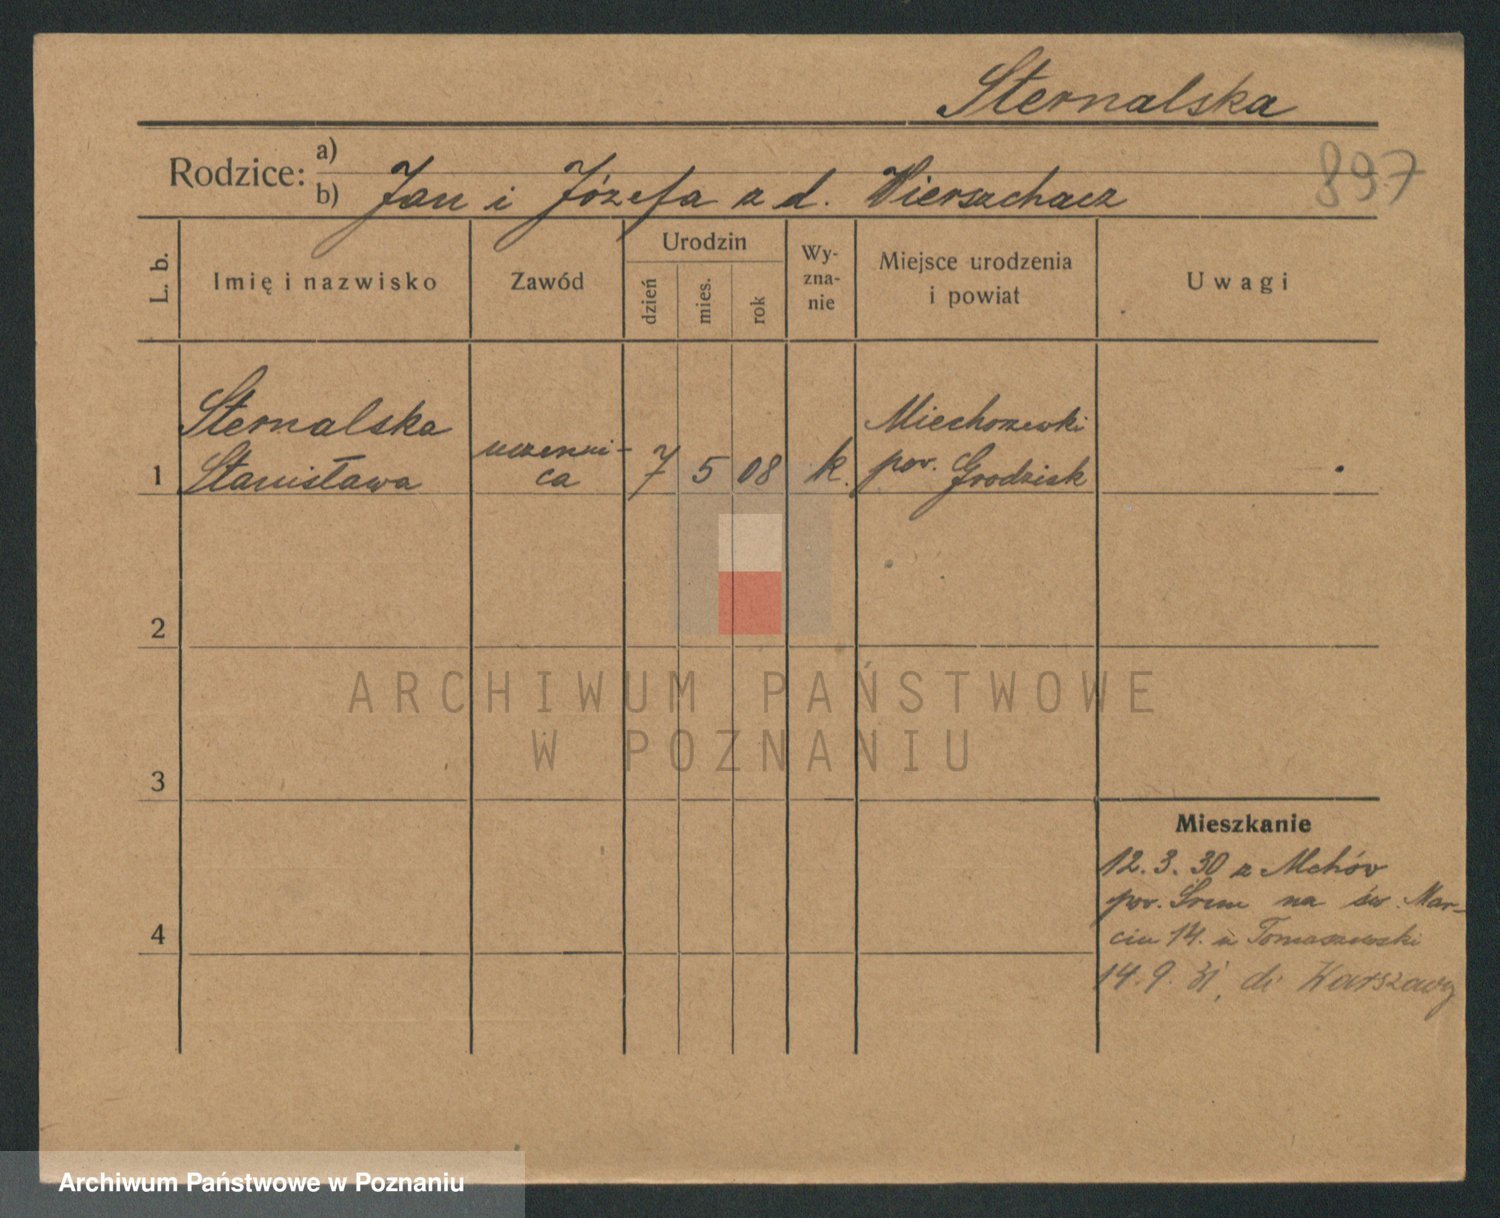 Sternalska
897
Rodzice: a)
b) Jan i Józefa z d. Wierszchacz
L. b.
Imię i nazwisko
Zawód
Urodzin
dzień
mies.
rok
Wy-
zna-
nie
Miejsce urodzenia
i powiat
Uwagi
1
Sternalska
Stanisława
uczenni-
ca
7
5
08
k.
Miechorzewki
pow. Grodzisk
2
3
4
Mieszkanie
12. 3. 30 z Mchów
pow. Śrem na św. Mar-
cin 14. u Tomaszewski
14. 9. 31. do Warszawy
ARCHIWUM PAŃSTWOWE
W POZNANIU
Archiwum Państwowe w Poznaniu